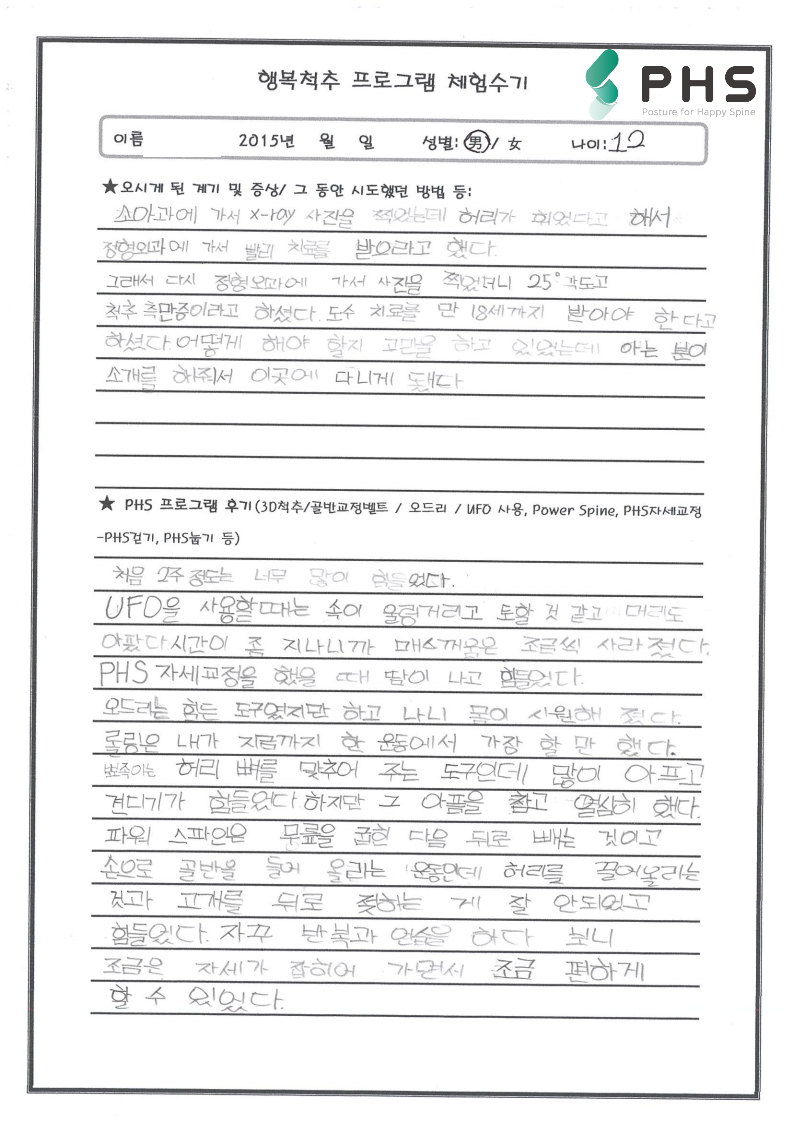 행복척추 프로그램 체험수기
PHS
Posture for Happy Spine
이름 2015년 월 일 성별: 男 / 女 나이: 12
★오시게 된 계기 및 증상/ 그 동안 시도했던 방법 등:
소아과에 가서 x-ray 사진을 찍었는데 허리가 휘었다고 해서
정형외과에 가서 빨리 치료를 받으라고 했다.
그래서 다시 정형외과에 가서 사진을 찍었더니 25° 각도고
척추 측만증이라고 하셨다. 도수 치료를 만 18세까지 받아야 한다고
하셨다 어떻게 해야 할지 고민을 하고 있었는데 아는 분이
소개를 해줘서 이곳에 다니게 됐다
★ PHS 프로그램 후기(3D척추/골반교정벨트 / 오드리 / UFO 사용, Power Spine, PHS자세교정
-PHS걷기, PHS눕기 등)
처음 2주 정도는 너무 많이 힘들었다.
UFO을 사용할 때는 속이 울렁거리고 토할 것 같고 머리도
아팠다 시간이 좀 지나니까 매스꺼움은 조금씩 사라졌다.
PHS 자세교정을 했을 때 땀이 나고 힘들었다.
오드리는 힘든 도구였지만 하고 나니 몸이 시원해 졌다.
롤링은 내가 지금까지 한 운동에서 가장 할 만 했다.
뾰족이는 허리 뼈를 맞추어 주는 도구인데 많이 아프고
견디기가 힘들었다 하지만 그 아픔을 참고 열심히 했다.
파워 스파인은 무릎을 굽힌 다음 뒤로 빼는 것이고
손으로 골반을 들어 올리는 운동인데 허리를 끌어올리는
것과 고개를 뒤로 젖히는 게 잘 안되었고
힘들었다. 자꾸 반복과 연습을 하다 보니
조금은 자세가 잡히어 가면서 조금 편하게
할 수 있었다.